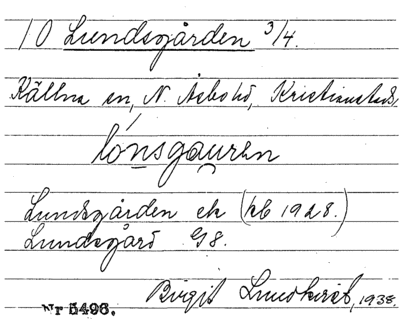 10 Lundsgården 3/4.
Källna sn, N. Åsbo hd, Kristianstads
lónsgauren
Lundsgården ek (kb 1928.)
Lundsgård G8.
Birgit Lundkvist, 1938.
Nr 5496.